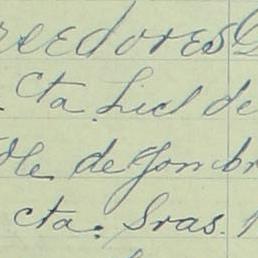 reedores
Cta. Liql de
de Gombr
cta. Sras.